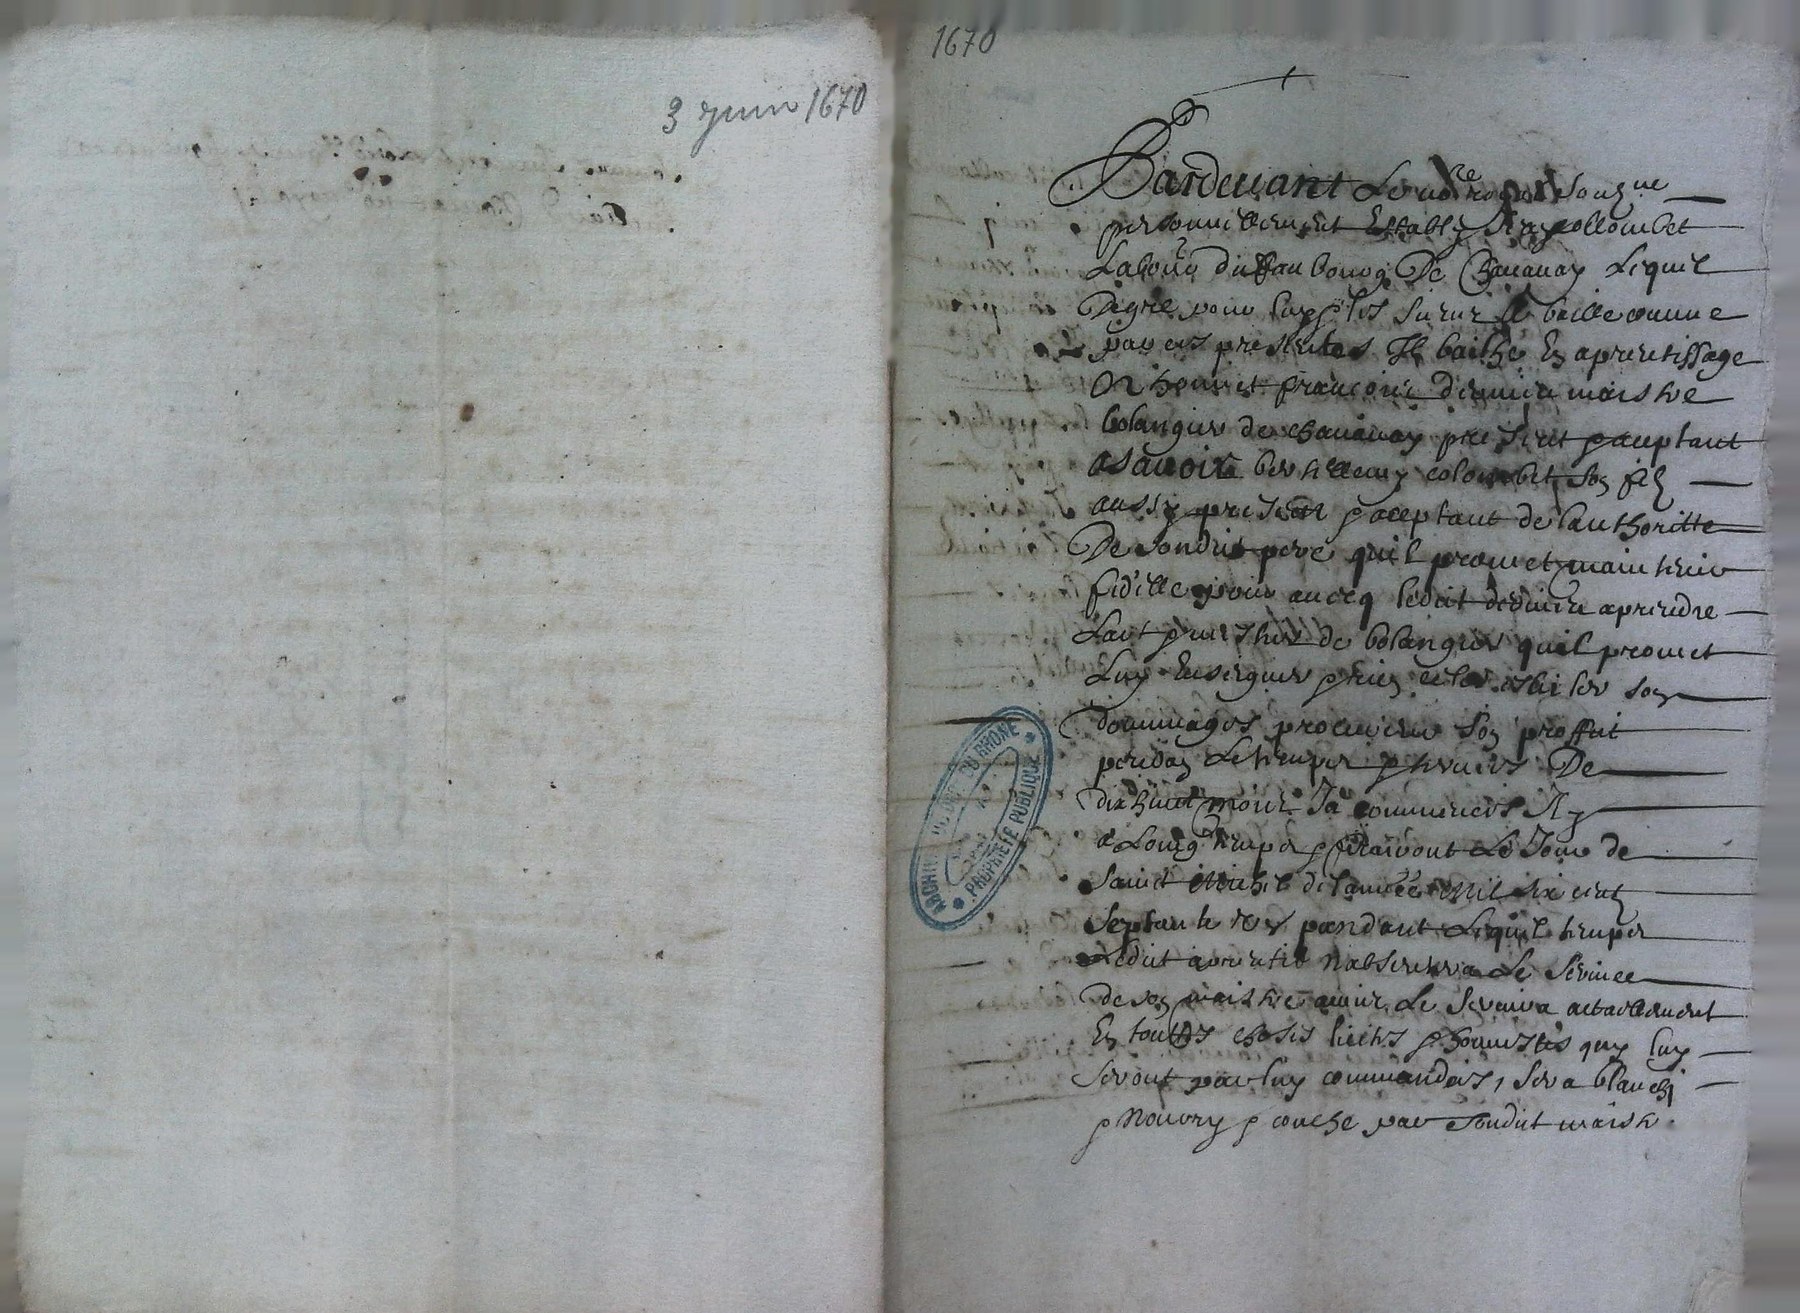 3 Juin 1670
1670
Pardevant Le no.re royal Soub.ne
personnellement Estably collombet
Labour. du faubourg De Chavanay Lequel
De gre pour luy & les siens baille comme
par ces presentes baille En aprentissage
honnet francois maistre
bolangier de chavanay present & aceptant
asavoir berthellemy colombet son filz
aussy present & aceptant de lauthoritte
De sondit pere quil promet maintenir
fidelle avecq ledit aprendre
Lart & mestier de bolangier quil promet
Luy Enseigner & rien esviter son
dommages procurer son proffit
pendan le temps & termes De
dix huict mois Ja commences Il y
a Long temps & finiront Le Jour de
Sainct Michel de lannee mil six cent
septante pandant Lequel temps
Ledit aprentif nabsentera Le service
de son maistre ains Le servira actuellement
En touttes choses licites & honnestes quy luy
seront par luy commandees, sera blanchi
& nourry & couche par sondit maistre
ARCHIVES DU RHONE
PROPRIETE PUBLIQUE